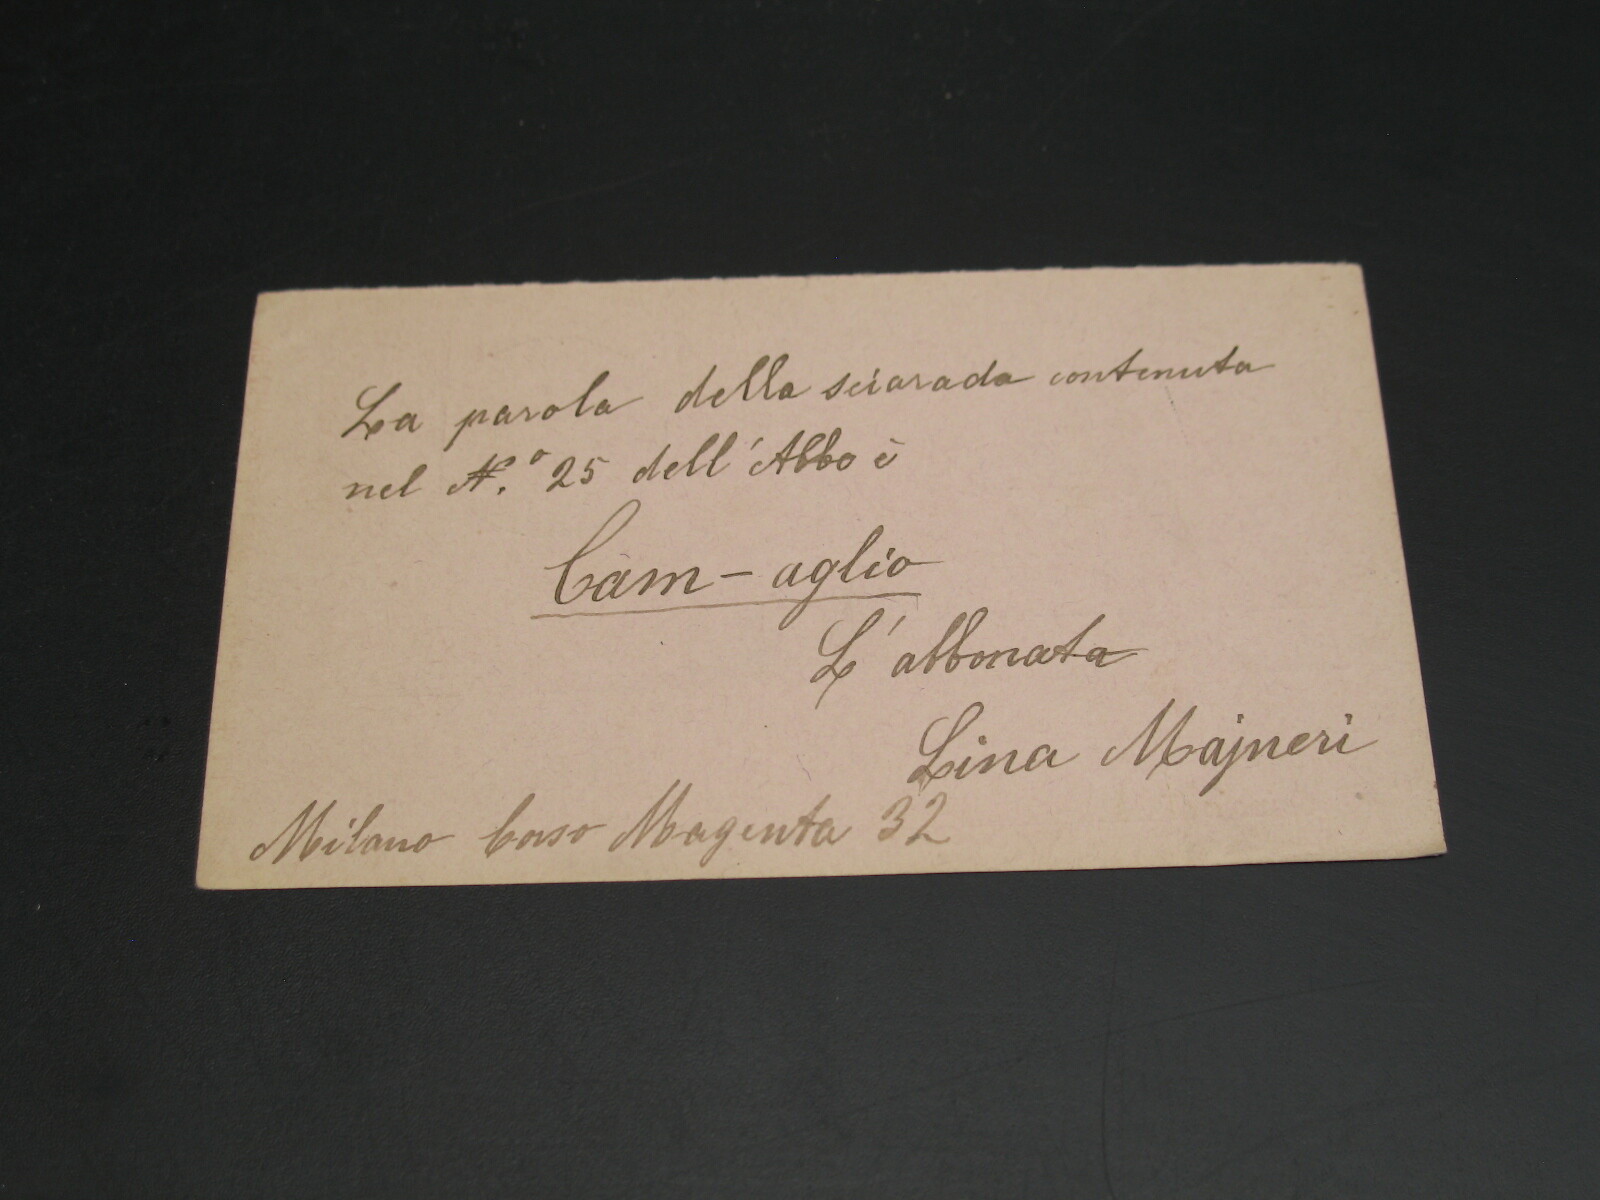 La parola della sciarada contenuta
nel N.º 25 dell'Abbo è
Cam-aglio
L'abbonata
Lina Majneri
Milano Corso Magenta 32